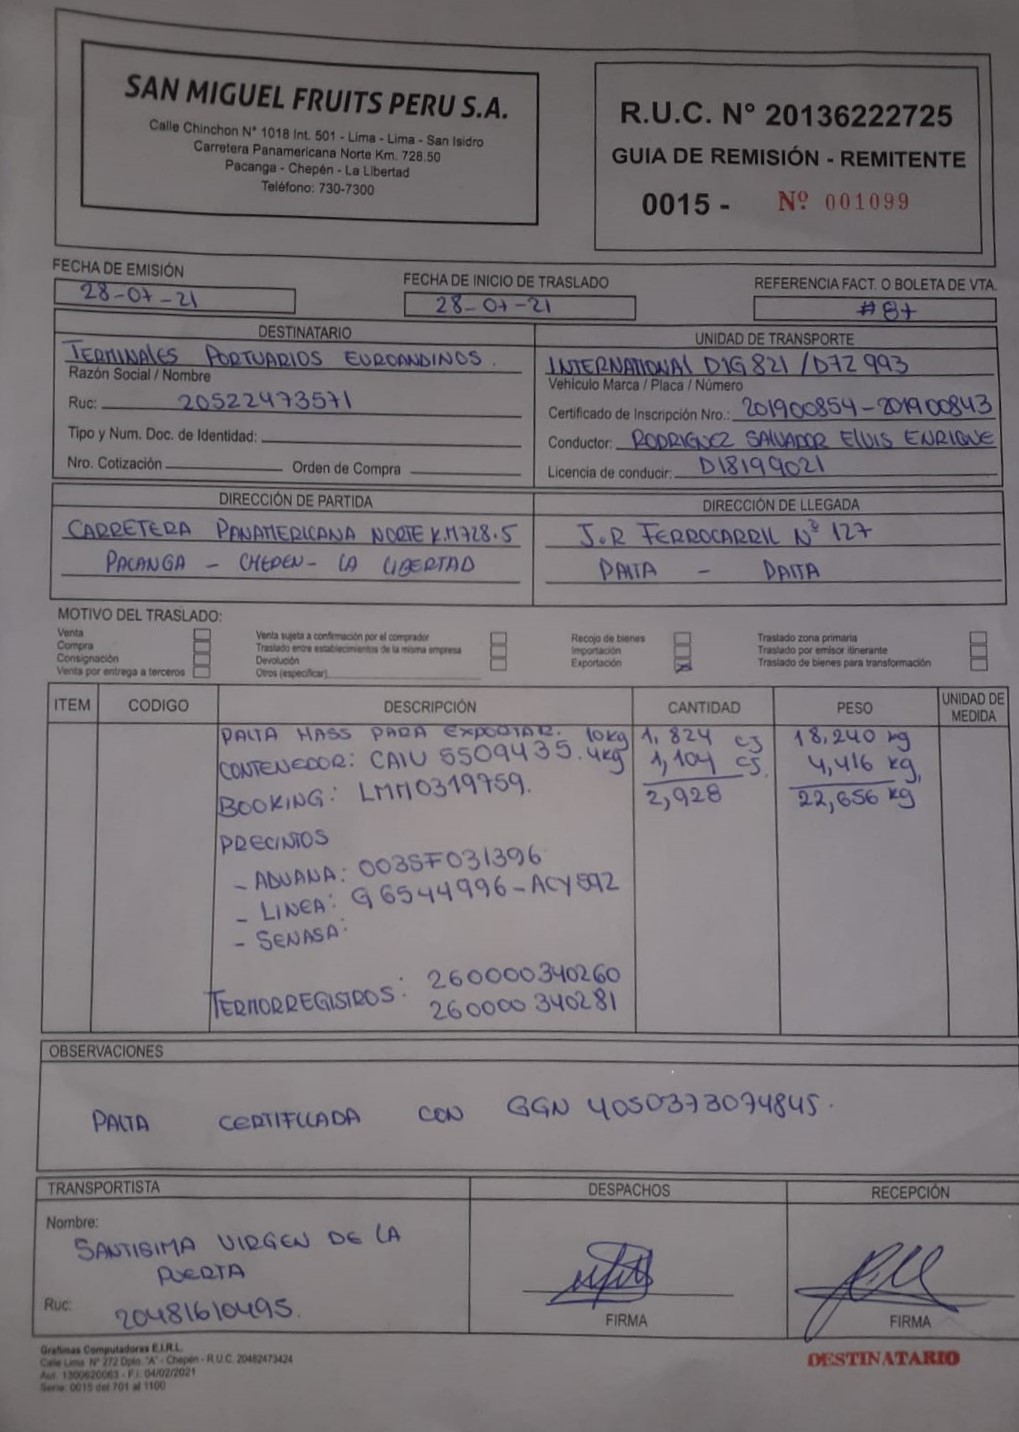 SAN MIGUEL FRUITS PERU S.A.
Calle Chinchon N° 1018 Int. 501 - Lima - Lima - San Isidro
Carretera Panamericana Norte Km. 728.50
Pacanga - Chepén - La Libertad
Teléfono: 730-7300
R.U.C. N° 20136222725
GUIA DE REMISIÓN - REMITENTE
0015 - Nº 001099
FECHA DE EMISIÓN
28-07-21
FECHA DE INICIO DE TRASLADO
28-07-21
REFERENCIA FACT. O BOLETA DE VTA.
#87
DESTINATARIO
TERMINALES PORTUARIOS EUROANDINOS.
Razón Social / Nombre
Ruc: 20522473571
Tipo y Num. Doc. de Identidad:
Nro. Cotización Orden de Compra
UNIDAD DE TRANSPORTE
INTERNATIONAL D1G821 /D7Z993
Vehiculo Marca / Placa / Número
Certificado de Inscripción Nro.: 201900854-201900843
Conductor: RODRIGUEZ SALVADOR ELVIS ENRIQUE
Licencia de conducir: D18199021
DIRECCIÓN DE PARTIDA
CARRETERA PANAMERICANA NORTE K.M728.5
PACANGA - CHEPEN - LA LIBERTAD
DIRECCIÓN DE LLEGADA
J.R FERROCARRIL Nº 127
PAITA - PAITA
MOTIVO DEL TRASLADO:
Venta
Compra
Consignación
Venta por entrega a terceros
Venta sujeta a confirmación por el comprador
Traslado entre establecimientos de la misma empresa
Devolución
Otros (especificar)
Recojo de bienes
Importación
Exportación
Traslado zona primaria
Traslado por emisor itinerante
Traslado de bienes para transformación
ITEM CODIGO DESCRIPCIÓN CANTIDAD PESO UNIDAD DE MEDIDA
PALTA HASS PARA EXPORTAR. 10kg 1,824 cj 18,240 kg
CONTENEDOR: CAIU 5509435. 4kg 1,104 cj. 4,416 kg,
BOOKING: LMM0319759. 2,928 22,656 kg
PRECINTOS
- ADUANA: 003SF031396
- LINEA: G6544996-ACY592
- SENASA:
TERMORREGISTROS: 260000340260
260000340281
OBSERVACIONES
PALTA CERTIFICADA CON GGN 4050373074845.
TRANSPORTISTA
Nombre:
SANTISIMA VIRGEN DE LA
PUERTA
Ruc: 20481610495.
DESPACHOS
FIRMA
RECEPCIÓN
FIRMA
Grafimas Computadoras E.I.R.L.
Calle Lima N° 272 Dpto. "A" - Chepén - R.U.C. 20482473424
Aut. 1300620063 - F.I. 04/02/2021
Serie: 0015 del 701 al 1100
DESTINATARIO